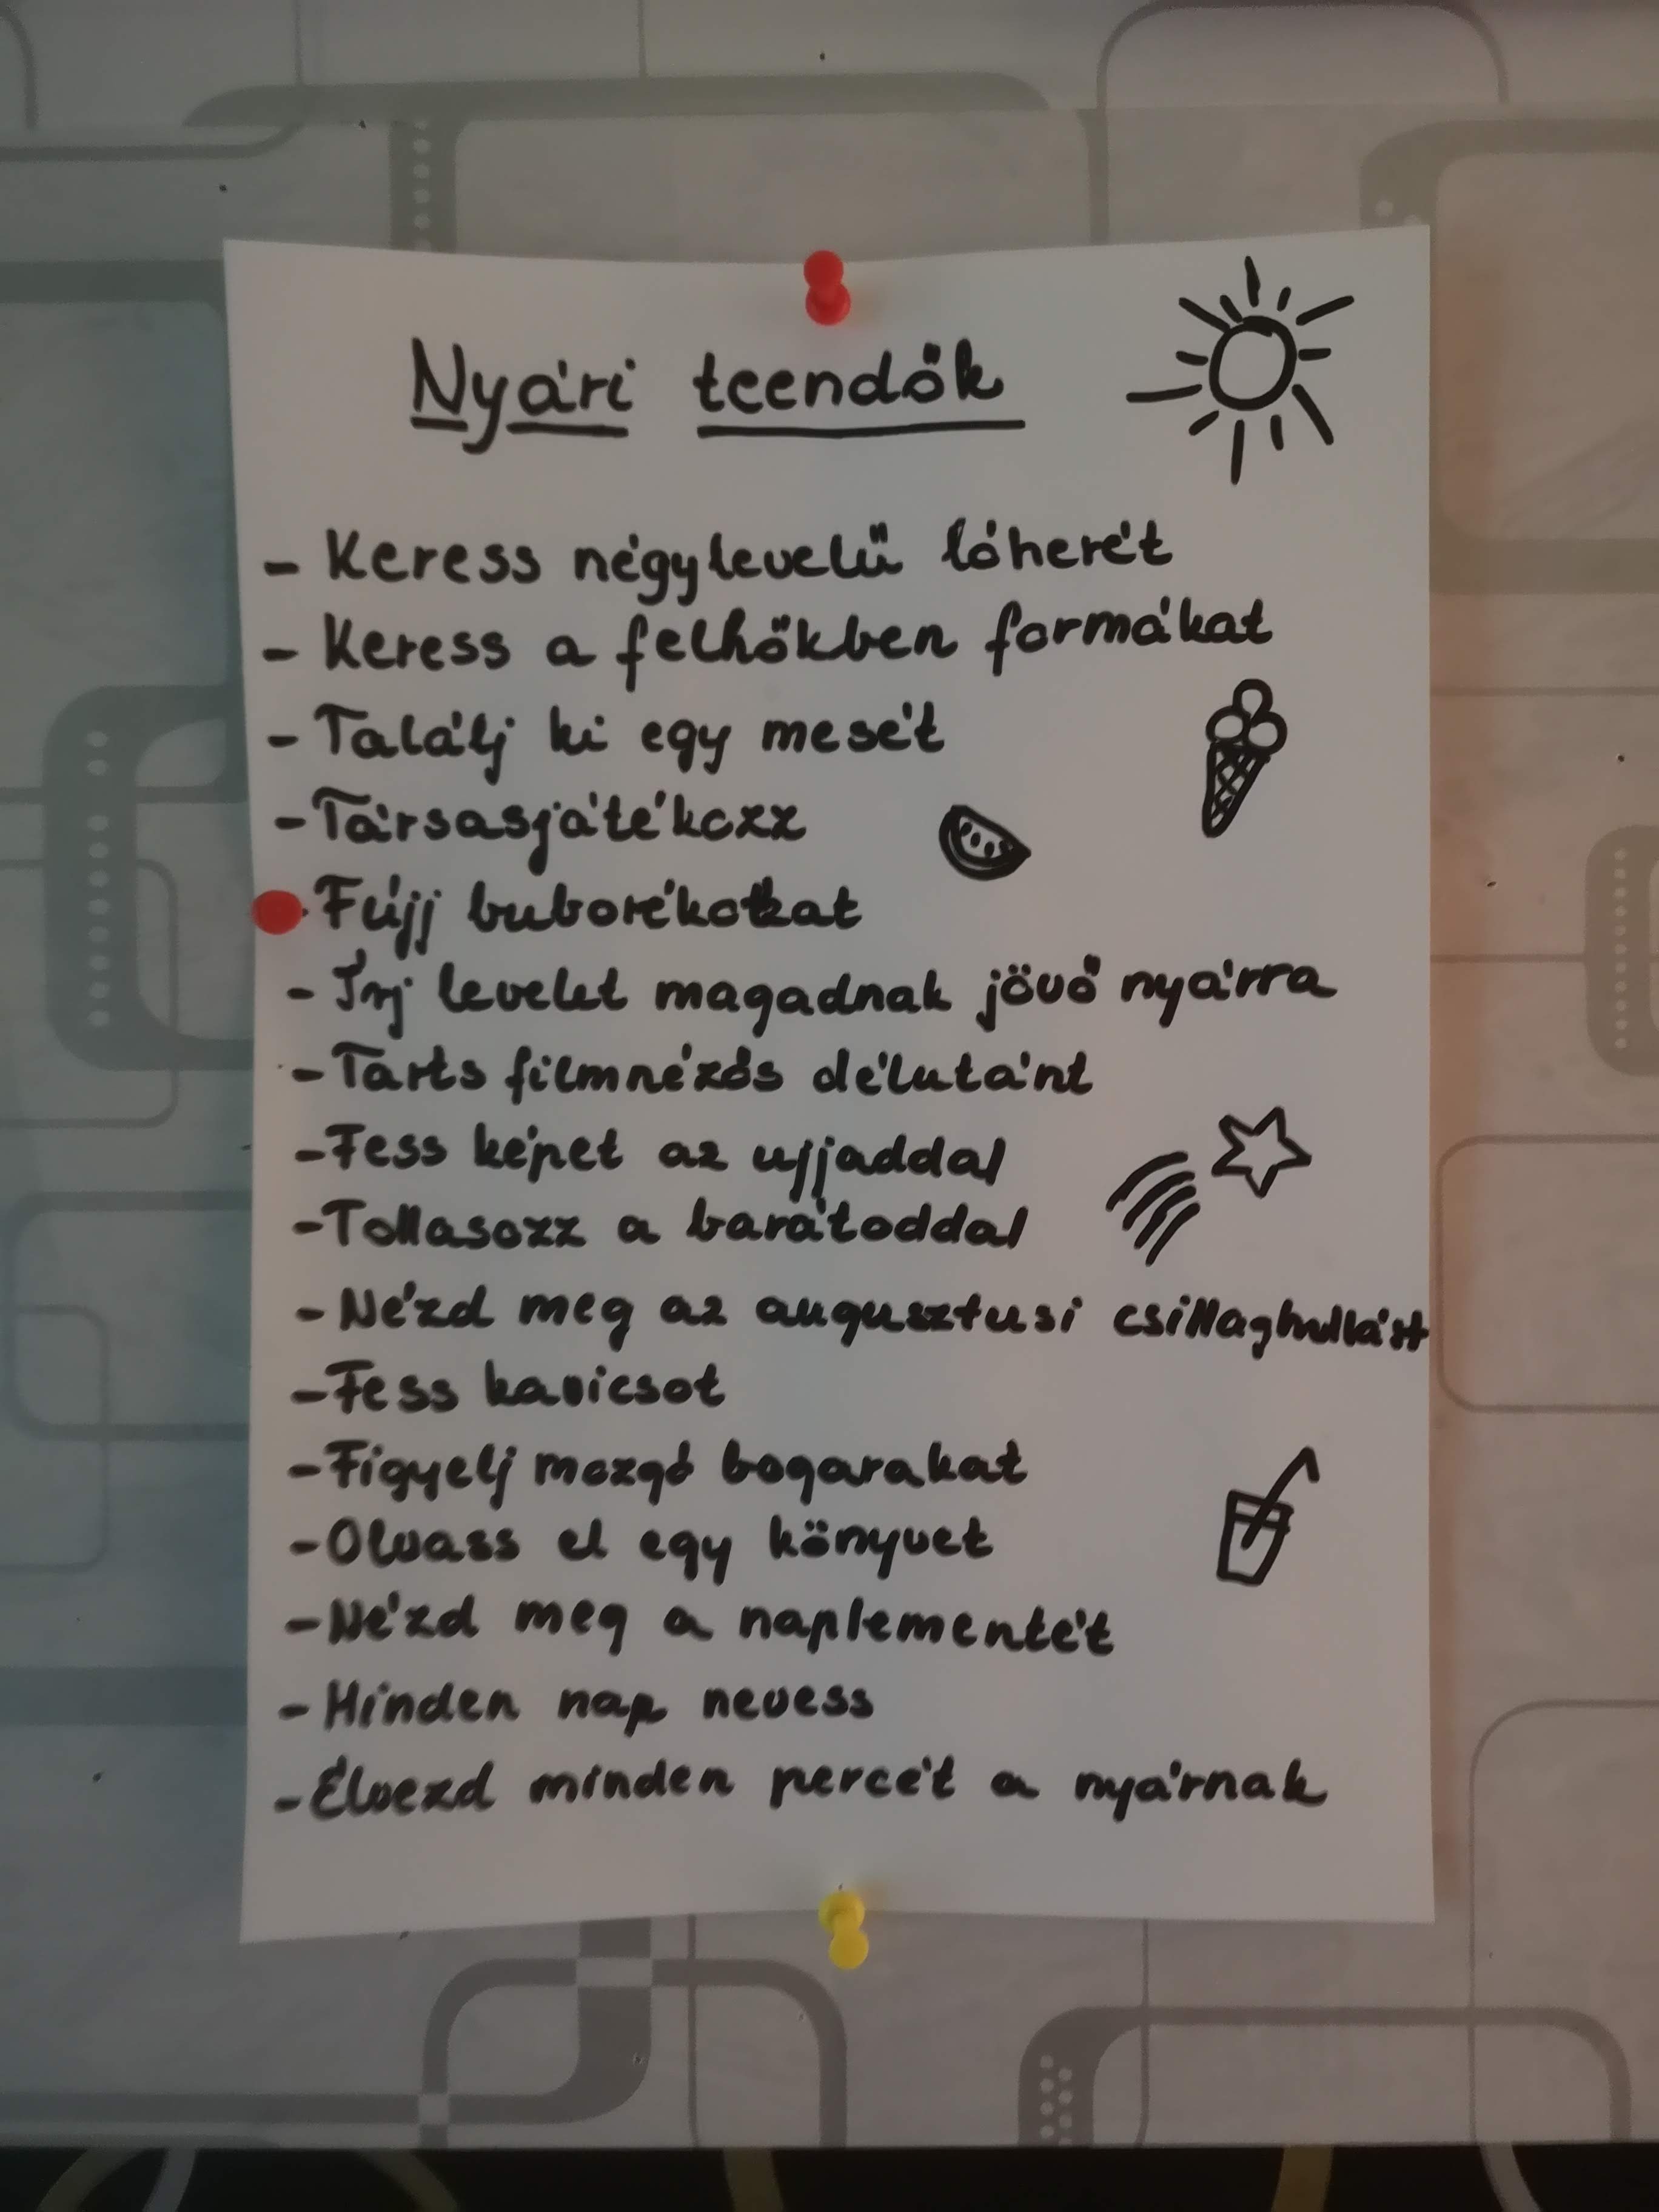 Nyári teendők
- Keress négylevelű lóherét
- Keress a felhőkben formákat
- Találj ki egy mesét
- Társasjátékozz
Fújj buborékokat
- Írj levelet magadnak jövő nyárra
- Tarts filmnézős délutánt
- Fess képet az ujjaddal
- Tollasozz a barátoddal
- Nézd meg az augusztusi csillaghullást
- Fess kavicsot
- Figyelj mozgó bogarakat
- Olvass el egy könyvet
- Nézd meg a naplementét
- Minden nap nevess
- Élvezd minden percét a nyárnak